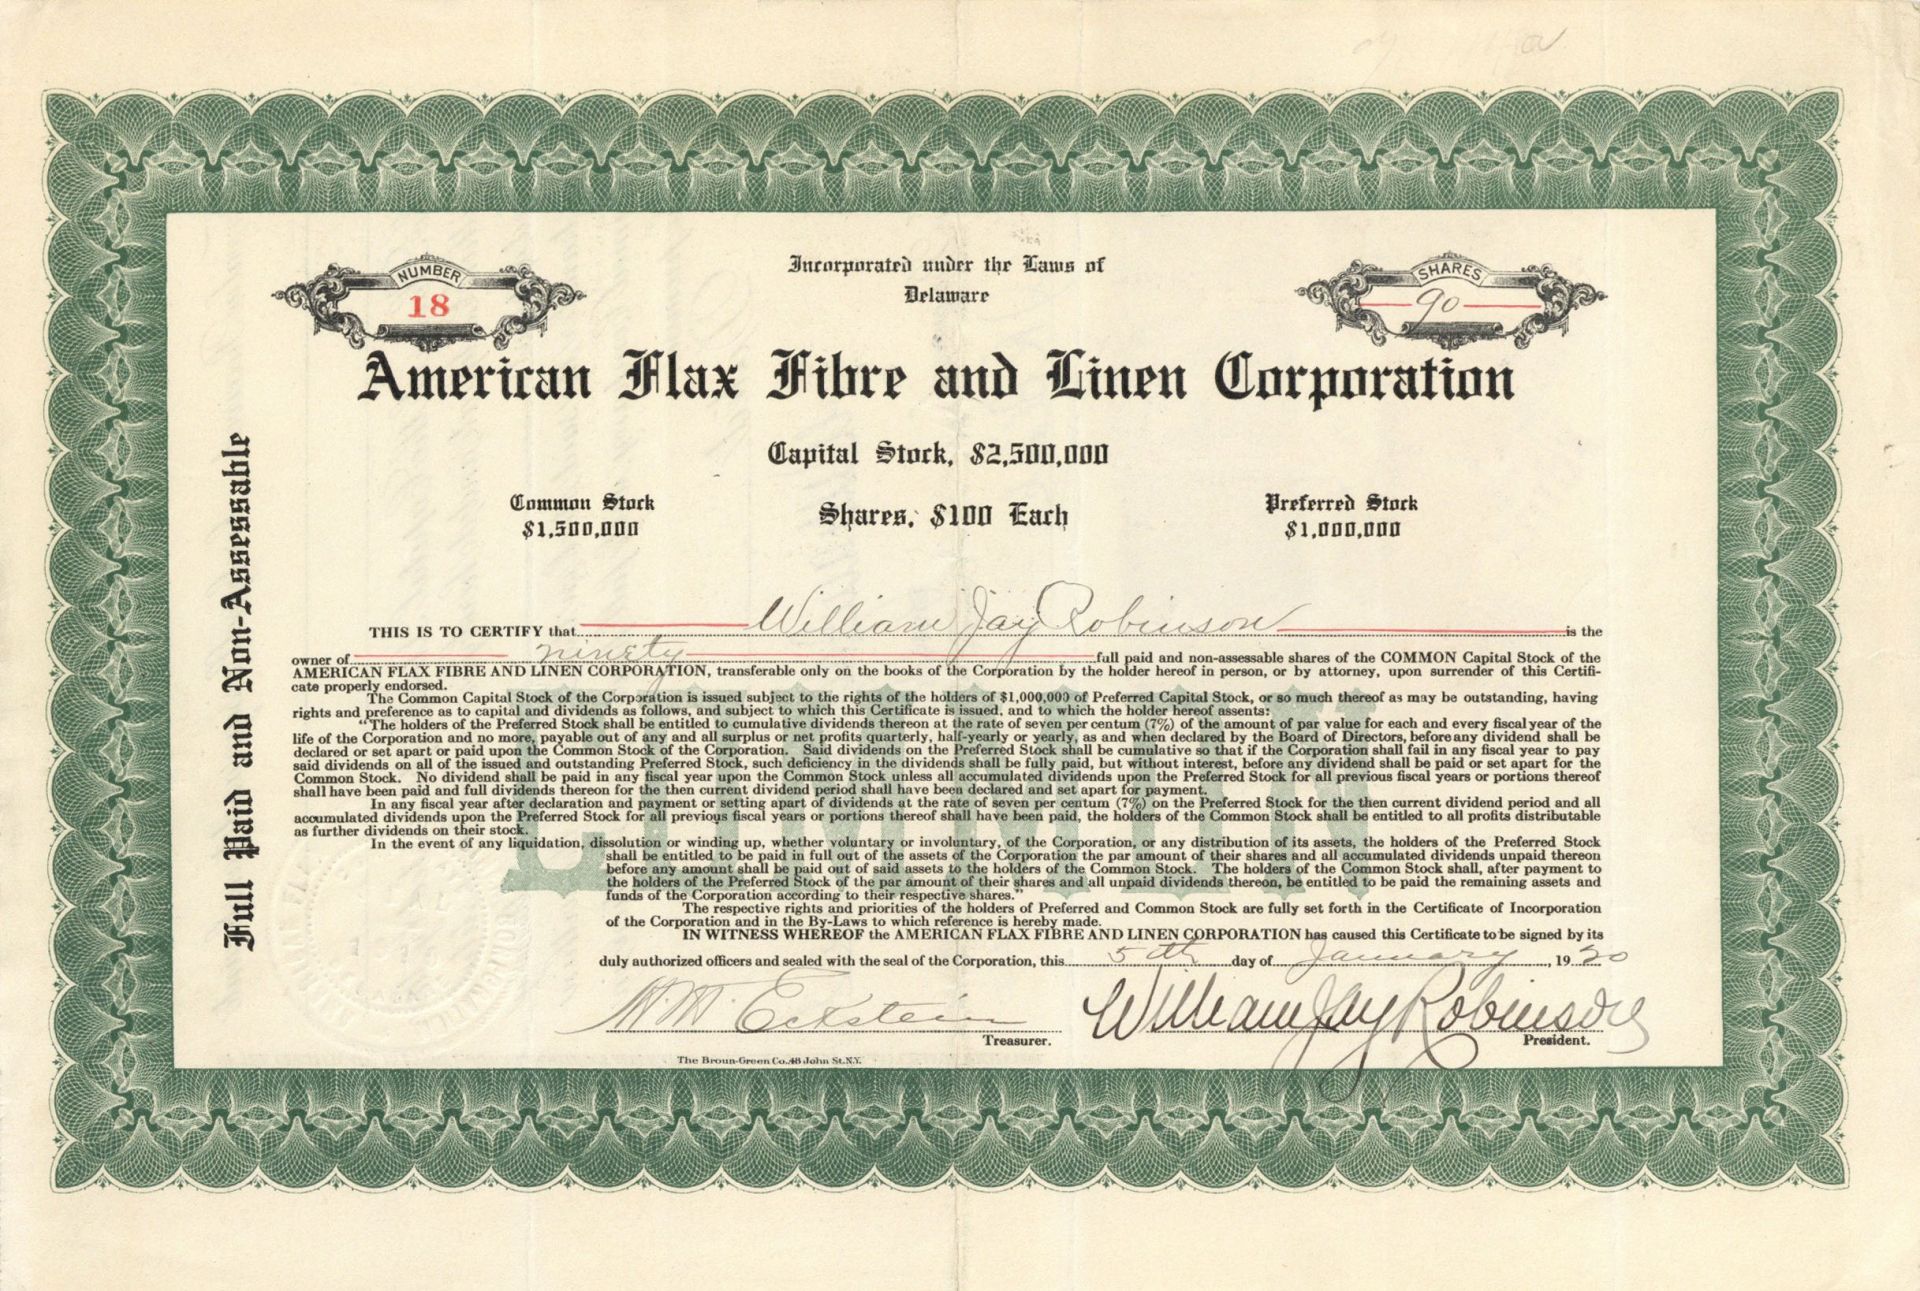 NUMBER
18
Incorporated under the Laws of
Delaware
SHARES
90
American Flax Fibre and Linen Corporation
Capital Stock, $2,500,000
Common Stock
$1,500,000
Shares, $100 Each
Preferred Stock
$1,000,000
Full Paid and Non-Assessable
THIS IS TO CERTIFY that William Jay Robinson is the
owner of ninety full paid and non-assessable shares of the COMMON Capital Stock of the
AMERICAN FLAX FIBRE AND LINEN CORPORATION, transferable only on the books of the Corporation by the holder hereof in person, or by attorney, upon surrender of this Certifi-
cate properly endorsed.
The Common Capital Stock of the Corporation is issued subject to the rights of the holders of $1,000,000 of Preferred Capital Stock, or so much thereof as may be outstanding, having
rights and preference as to capital and dividends as follows, and subject to which this Certificate is issued, and to which the holder hereof assents:
"The holders of the Preferred Stock shall be entitled to cumulative dividends thereon at the rate of seven per centum (7%) of the amount of par value for each and every fiscal year of the
life of the Corporation and no more, payable out of any and all surplus or net profits quarterly, half-yearly or yearly, as and when declared by the Board of Directors, before any dividend shall be
declared or set apart or paid upon the Common Stock of the Corporation. Said dividends on the Preferred Stock shall be cumulative so that if the Corporation shall fail in any fiscal year to pay
said dividends on all of the issued and outstanding Preferred Stock, such deficiency in the dividends shall be fully paid, but without interest, before any dividend shall be paid or set apart for the
Common Stock. No dividend shall be paid in any fiscal year upon the Common Stock unless all accumulated dividends upon the Preferred Stock for all previous fiscal years or portions thereof
shall have been paid and full dividends thereon for the then current dividend period shall have been declared and set apart for payment.
In any fiscal year after declaration and payment or setting apart of dividends at the rate of seven per centum (7%) on the Preferred Stock for the then current dividend period and all
accumulated dividends upon the Preferred Stock for all previous fiscal years or portions thereof shall have been paid, the holders of the Common Stock shall be entitled to all profits distributable
as further dividends on their stock.
In the event of any liquidation, dissolution or winding up, whether voluntary or involuntary, of the Corporation, or any distribution of its assets, the holders of the Preferred Stock
shall be entitled to be paid in full out of the assets of the Corporation the par amount of their shares and all accumulated dividends unpaid thereon
before any amount shall be paid out of said assets to the holders of the Common Stock. The holders of the Common Stock shall, after payment to
the holders of the Preferred Stock of the par amount of their shares and all unpaid dividends thereon, be entitled to be paid the remaining assets and
funds of the Corporation according to their respective shares."
The respective rights and priorities of the holders of Preferred and Common Stock are fully set forth in the Certificate of Incorporation
of the Corporation and in the By-Laws to which reference is hereby made.
IN WITNESS WHEREOF the AMERICAN FLAX FIBRE AND LINEN CORPORATION has caused this Certificate to be signed by its
duly authorized officers and sealed with the seal of the Corporation, this 5th day of January, 1920
H. M. Eckstein
Treasurer.
William Jay Robinson
President.
The Broun-Green Co. 48 John St. N.Y.